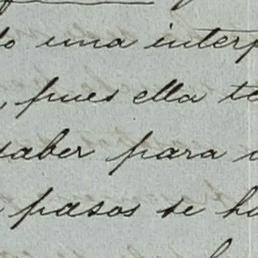 do una interp
, pues ella te
saber para
pasos se ha